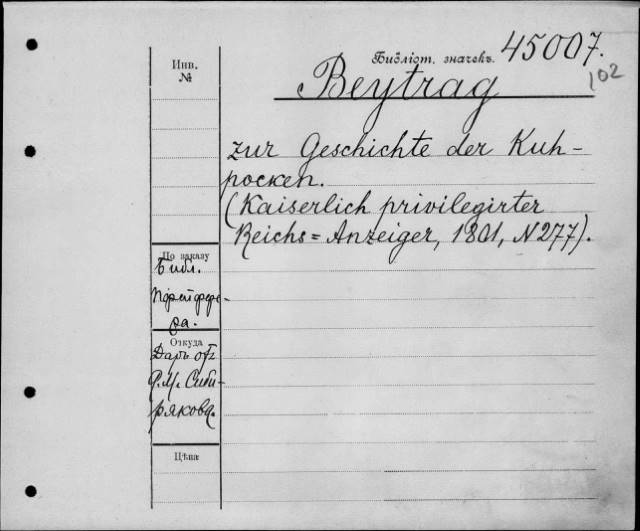 Библіот. значекъ. 45007.
102
Инв.
№
Beytrag
zur Geschichte der Kuh-
pocken.
(Kaiserlich privilegirter
Reichs=Anzeiger, 1801, N 277).
По заказу
Библ.
Пфейфере-
ра.
Откуда
Даръ отъ
Сиби-
рякова.
Цѣна